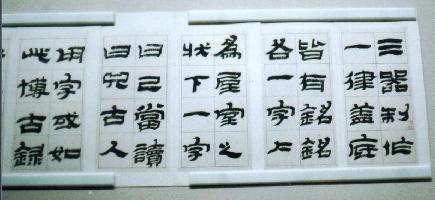 三器制作
一律蓋庭
皆有銘銘
各一字上
為屋室之
狀下一字
曰己當讀
曰兕古人
用字或如
此博古錄